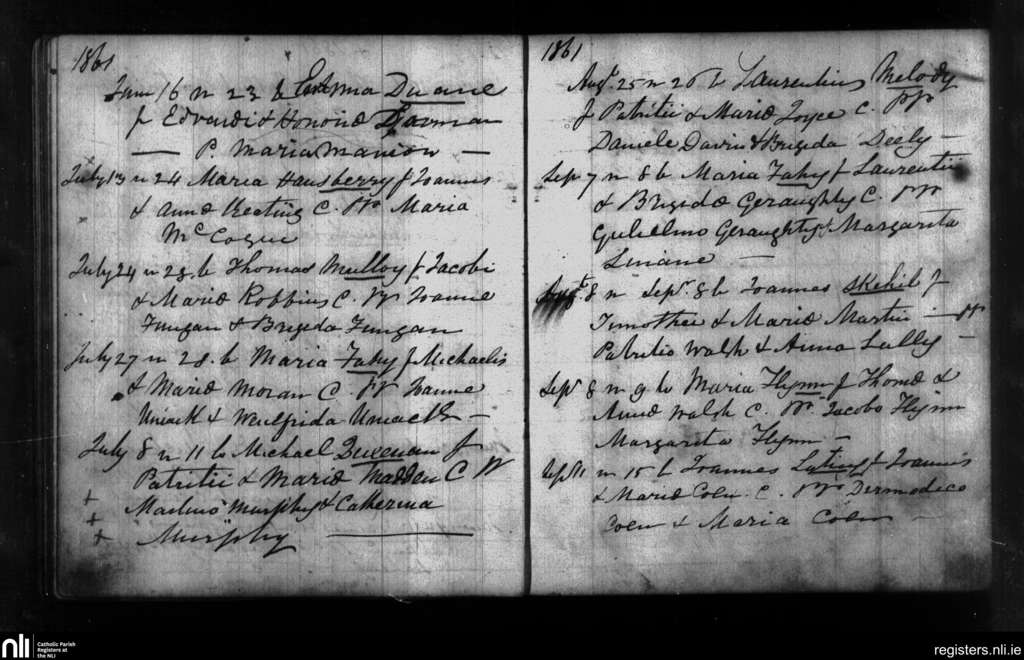 1861
June 16 n 23 b Emma Duane
f Edvardi & Honoriæ
— P. Maria Manion —
July 13 n 24 Maria Hansberry f Joannis
& Annæ Keeting C. Pr Maria
Mc Cogue
July 24 n 28. b Thomas Mulloy f Jacobi
& Mariæ Robbins C. pp Joanne
Fungan & Brigida Fungan
July 27 n 28. b Maria Fahy f Michaelis
& Mariæ Moran C. PP Joanne
Uniack & Uniack —
July 8 n 11 b Michael f
Patritii & Mariæ Madden C PP
+ Murphy & Catherina
+ Murphy
+
1861
Augt. 25 n 26 b Laurentius Melody
f Patritii & Mariæ Joyce C. PPr
Daniele Davin & Brigida Deely —
Sep 7 n 8 b Maria Fahy f Laurentii
& Brigidæ Geraughty C. PPr
Gulielmo Geraughty & Margarita
Linane —
Augt. 8 n Sepr. 8 b Joannes Skehil f
Timothei & Mariæ Martin — pp
Patritio Walsh & Anna Lally —
Sepr 8 n 9 b Maria Flynn f Thomæ &
Annæ Walsh C. PPr Jacobo Flynn
Margarita Flynn —
Sept 11 n 15 b Joannes f Joannis
& Mariæ Coen. C. PPr Dermodico
Coen & Maria Coen —
nli
Catholic Parish
Registers at
the NLI
registers.nli.ie